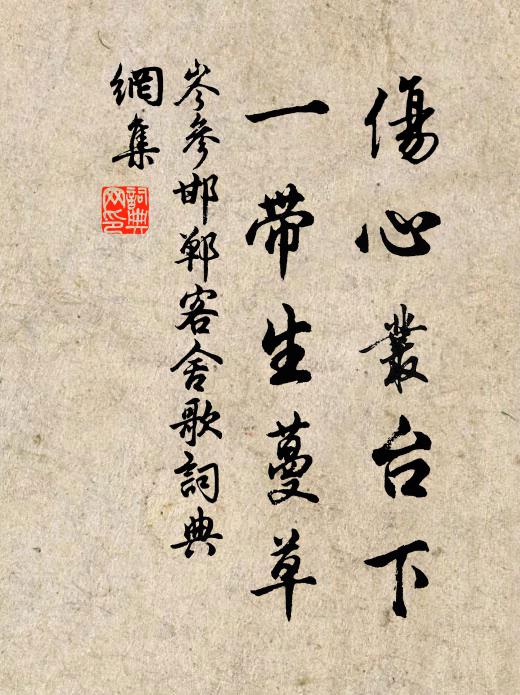 傷心叢台下
一帶生蔓草
岑參邯鄲客舍歌詞典
網集
詞典
网印